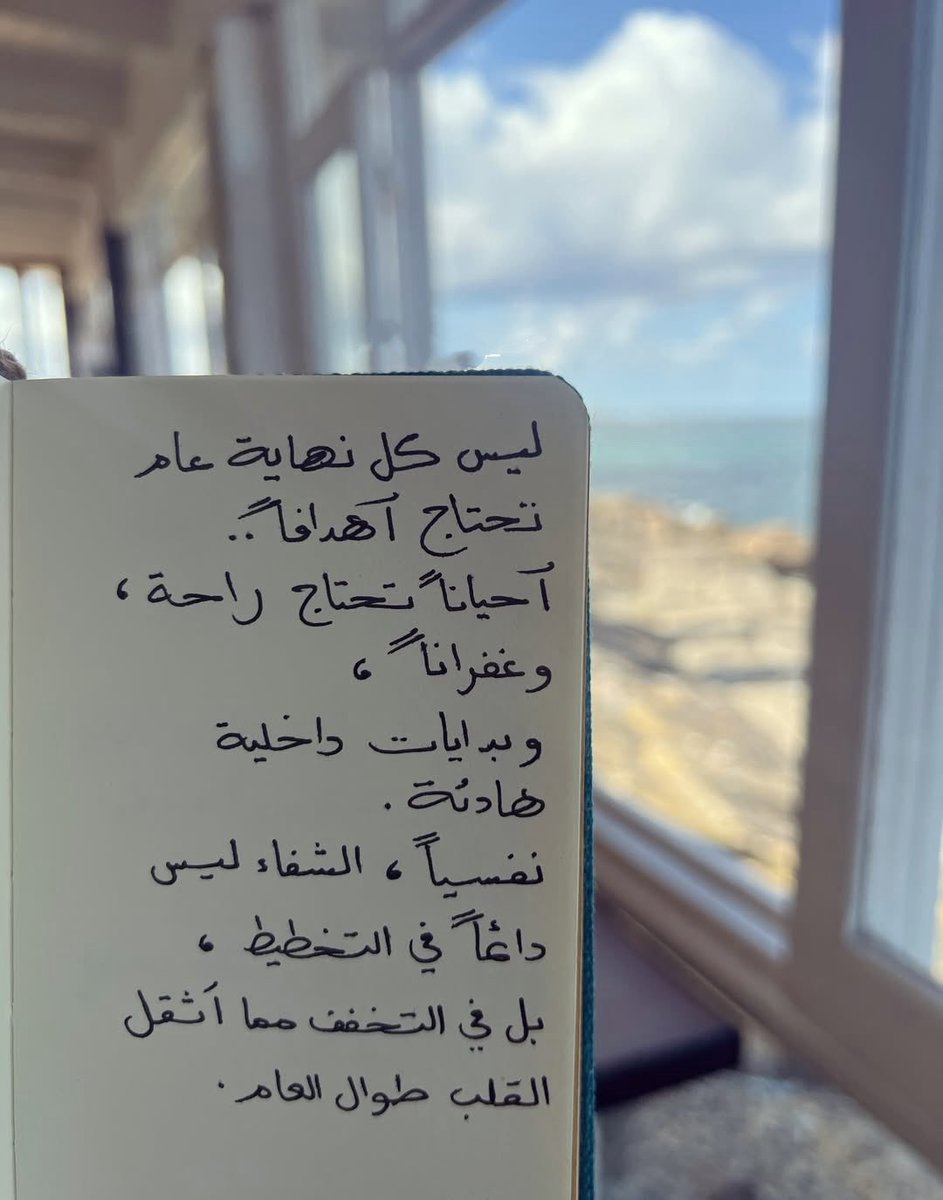 ليس كل نهاية عام
تحتاج أهدافاً..
أحياناً تحتاج راحة،
وغفراناً،
وبدايات داخلية
هادئة.
نفسياً، الشفاء ليس
دائماً في التخطيط،
بل في التخفف مما أثقل
القلب طوال العام.